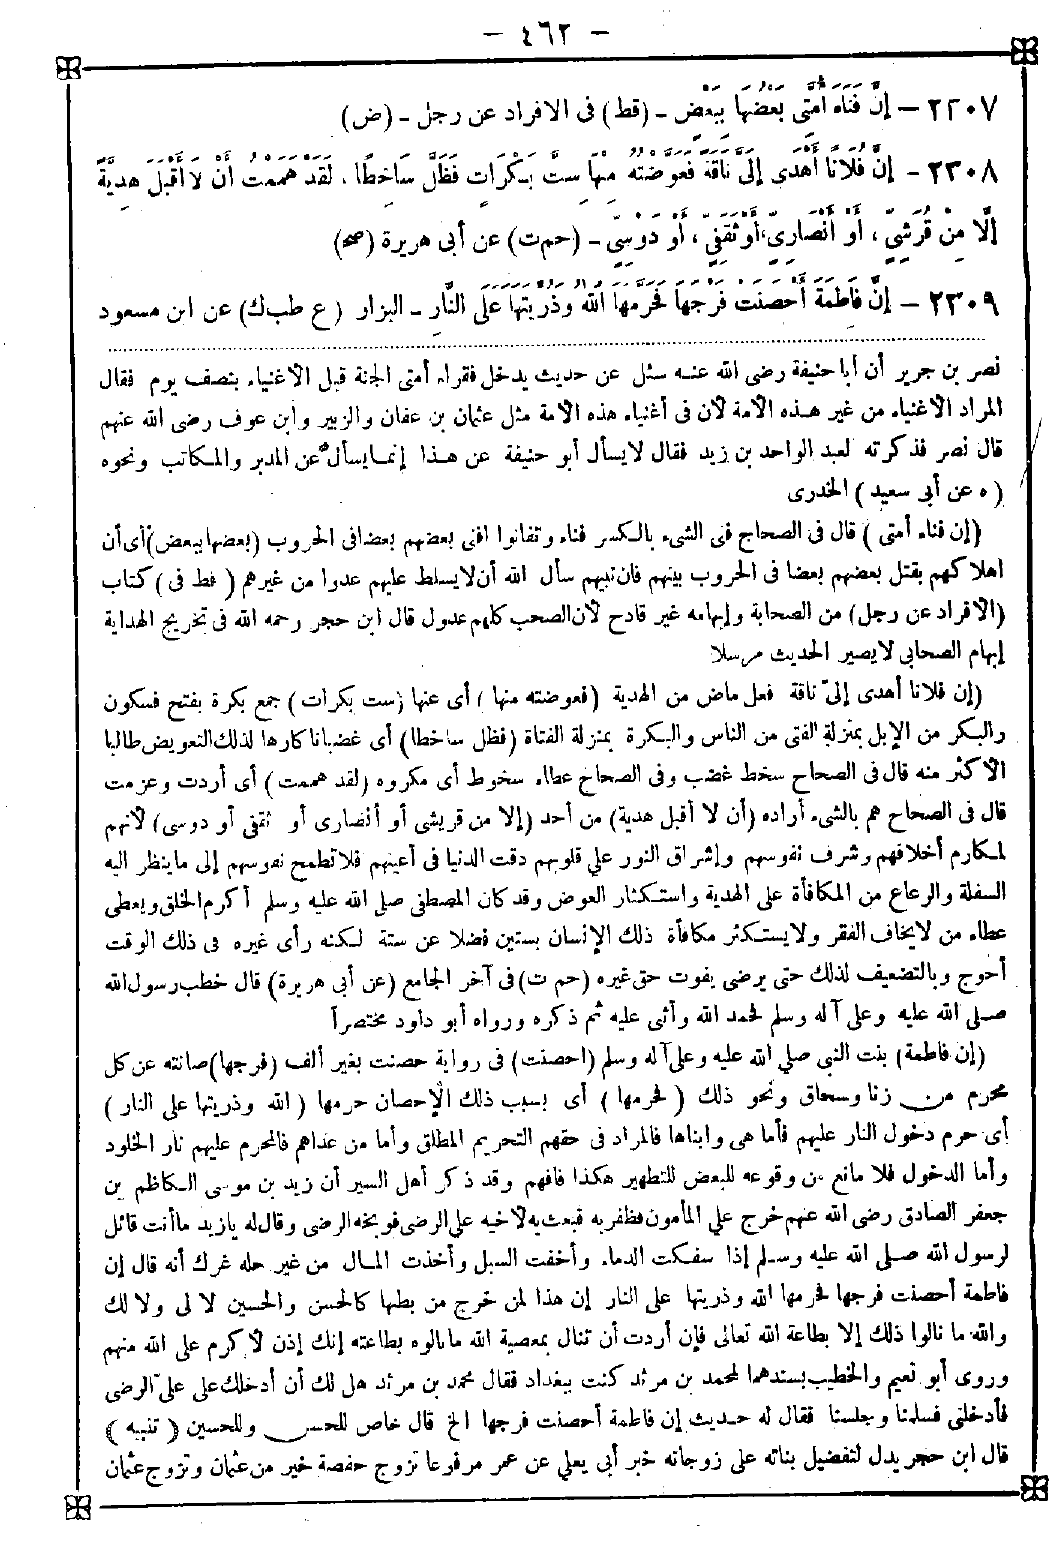 - ٤٦٢ -
٢٣٠٧ - إِنَّ فَنَاءَ أُمَّتِي بَعْضُهَا بِبَعْضٍ - (قط) فى الافراد عن رجل - (ض)
٢٣٠٨ - إِنَّ فُلَانًا أَهْدَى إِلَيَّ نَاقَةً فَعَوَّضْتُهُ مِنْهَا سِتَّ بَكْرَاتٍ فَظَلَّ سَاخِطًا، لَقَدْ هَمَمْتُ أَنْ لَا أَقْبَلَ هَدِيَّةً
إِلَّا مِنْ قُرَشِيٍّ، أَوْ أَنْصَارِيٍّ، أَوْ ثَقَفِيٍّ، أَوْ دَوْسِيٍّ - (حم ت) عن أبى هريرة (صح)
٢٣٠٩ - إِنَّ فَاطِمَةَ أَحْصَنَتْ فَرْجَهَا فَحَرَّمَهَا اللهُ وَذُرِّيَّتَهَا عَلَى النَّارِ - البزار (ع طب ك) عن ابن مسعود
نصر بن جرير أن أبا حنيفة رضى الله عنه سئل عن حديث يدخل فقراء أمتى الجنة قبل الاغنياء بنصف يوم فقال
المراد الاغنياء من غير هذه الامة لأن فى أغنياء هذه الامة مثل عثمان بن عفان والزبير وابن عوف رضى الله عنهم
قال نصر فذكرته لعبد الواحد بن زيد فقال لايسأل أبو حنيفة عن هذا إنما يسأل عن المدبر والمكاتب ونحوه
(ه عن أبى سعيد) الخدرى
(إن فناء أمتى) قال فى الصحاح فنى الشىء بالكسر فناء وتفانوا افنى بعضهم بعضا فى الحروب (بعضها ببعض) أى أن
اهلاكهم بقتل بعضهم بعضا فى الحروب بينهم فان نبيهم سأل الله أن لايسلط عليهم عدوا من غيرهم (قط فى) كتاب
(الافراد عن رجل) من الصحابة وإبهامه غير قادح لأن الصحب كلهم عدول قال ابن حجر رحمه الله فى تخريج الهداية
إبهام الصحابى لايصير الحديث مرسلا
(إن فلانا أهدى إلىّ ناقة فعل ماض من الهدية (فعوضته منها) أى عنها (ست بكرات) جمع بكرة بفتح فسكون
والبكر من الإبل بمنزلة الفتى من الناس والبكرة بمنزلة الفتاة (فظل ساخطا) أى غضبانا كارها لذلك التعويض طالبا
الاكثر منه قال فى الصحاح سخط غضب وفى الصحاح عطاء سخوط أى مكروه (لقد هممت) أى أردت وعزمت
قال فى الصحاح هم بالشىء أراده (أن لا أقبل هدية) من أحد (إلا من قريشى أو أنصارى أو ثقفى أو دوسى) لأنهم
لمكارم أخلاقهم وشرف نفوسهم وإشراق النور على قلوبهم دقت الدنيا فى أعينهم فلا تطمح نفوسهم إلى ماينظر اليه
السفلة والرعاع من المكافأة على الهدية واستكثار العوض وقد كان المصطفى صلى الله عليه وسلم أكرم الخلق ويعطى
عطاء من لايخاف الفقر ولايستكثر مكافأة ذلك الإنسان بستين فضلا عن ستة لكنه رأى غيره فى ذلك الوقت
أحوج وبالتضعيف لذلك حتى يرضى يفوت حق غيره (حم ت) فى آخر الجامع (عن أبى هريرة) قال خطب رسول الله
صلى الله عليه وعلى آله وسلم فحمد الله وأثنى عليه ثم ذكره ورواه أبو داود مختصراً
(إن فاطمة) بنت النبى صلى الله عليه وعلى آله وسلم (احصنت) فى رواية حصنت بغير ألف (فرجها) صانته عن كل
محرم من زنا وسحاق ونحو ذلك (فحرمها) أى بسبب ذلك الإحصان حرمها (الله وذريتها على النار)
أى حرم دخول النار عليهم فأما هى وابناها فالمراد فى حقهم التحريم المطلق وأما من عداهم فالمحرم عليهم نار الخلود
وأما الدخول فلا مانع من وقوعه للبعض للتطهير هكذا فافهم وقد ذكر أهل السير أن زيد بن موسى الكاظم بن
جعفر الصادق رضى الله عنهم خرج على المأمون فظفر به فبعث به لأخيه على الرضى فوبخه الرضى وقال له يازيد ماأنت قائل
لرسول الله صلى الله عليه وسلم إذا سفكت الدماء وأخفت السبل وأخذت المال من غير حله غرك أنه قال إن
فاطمة أحصنت فرجها فحرمها الله وذريتها على النار إن هذا لمن خرج من بطنها كالحسن والحسين لا لى ولا لك
والله ما نالوا ذلك إلا بطاعة الله تعالى فإن أردت أن تنال بمعصية الله مانالوه بطاعته إنك إذن لأكرم على الله منهم
وروى أبو نعيم والخطيب بسندهما لمحمد بن مرثد كنت ببغداد فقال محمد بن مرثد هل لك أن أدخلك على على الرضى
فأدخلنى فسلمنا وجلسنا فقال له حديث إن فاطمة أحصنت فرجها الخ قال خاص للحسن وللحسين (تنبيه)
قال ابن حجر يدل لتفضيل بناته على زوجاته خبر أبى يعلى عن عمر مرفوعا تزوج حفصة خير من عثمان وتزوج عثمان